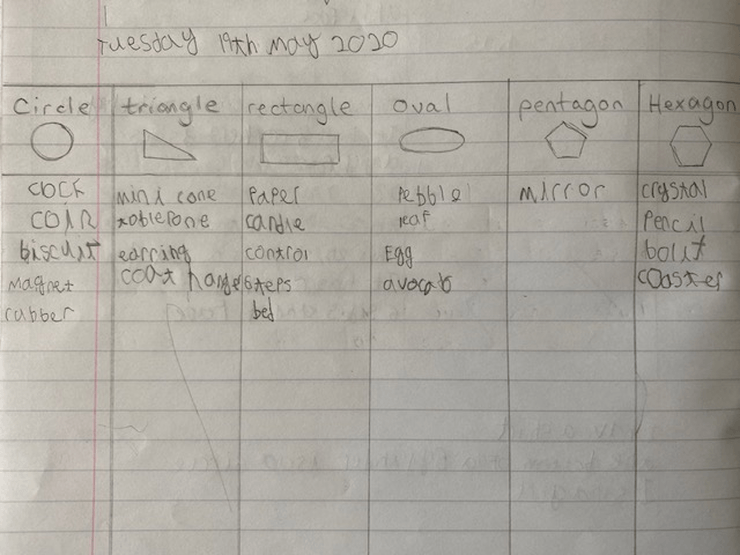 Tuesday 19th May 2020
Circle triangle rectangle oval pentagon Hexagon
COCK mini cone Paper Pebble mirror crystal
COIN toblerone candle leaf Pencil
biscuit earring control Egg bolt
Magnet coat hanger steps avocato coaster
rubber bed